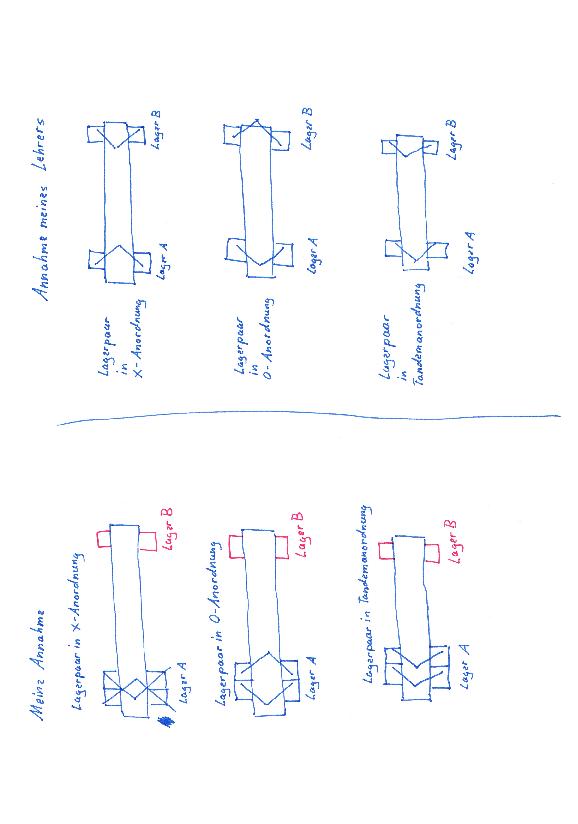 Meine Annahme
Lagerpaar in X-Anordnung
Lager A
Lager B
Lagerpaar in O-Anordnung
Lager A
Lager B
Lagerpaar in Tandemanordnung
Lager A
Lager B
Annahme meines Lehrers
Lagerpaar
in
X-Anordnung
Lager A
Lager B
Lagerpaar
in
O-Anordnung
Lager A
Lager B
Lagerpaar
in
Tandemanordnung
Lager A
Lager B